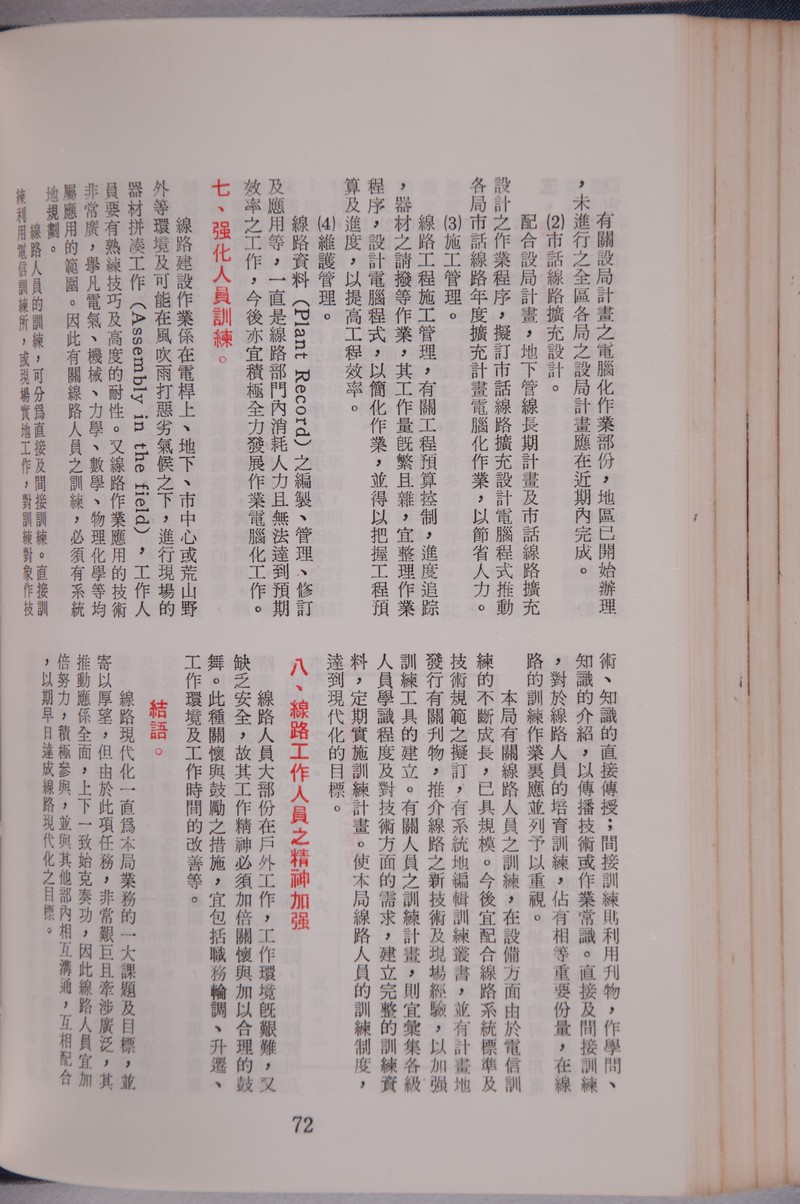 有關設局計畫之電腦化作業部份，地區已開始辦理
，未進行之全區各局之設局計畫應在近期內完成。
(2)市話線路擴充設計。
配合設局計畫，地下管線長期計畫及市話線路擴充
設計之作業程序，擬訂市話線路擴充設計電腦程式推動
各局市話線路年度擴充計畫電腦化作業，以節省人力。
(3)施工管理。
線路工程施工管理，有關工程預算控制，進度追踪
，器材之請撥等作業，其工作量既繁且雜，宜整理作業
程序，設計電腦程式，以簡化作業，並得以把握工程預
算及進度，以提高工程效率。
(4)維護管理。
線路資料（Plant Record）之編製、管理、修訂
及應用等，一直是線路部門內消耗人力且無法達到預期
效率之工作，今後亦宜積極全力發展作業電腦化工作。
七、强化人員訓練。
線路建設作業係在電桿上、地下、市中心或荒山野
外等環境及可能在風吹雨打惡劣氣候之下，進行現場的
器材拼湊工作（Assembly in the field），工作人
員要有熟練技巧及高度的耐性。又線路作業應用的技術
非常廣，擧凡電氣、機械、力學、數學、物理化學等均
屬應用的範圍。因此有關線路人員之訓練，必須有系統
地規劃。
線路人員的訓練，可分爲直接及間接訓練。直接訓
練利用電信訓練所，或現場實地工作，對訓練對象作技
術、知識的直接傳授；間接訓練則利用刋物，作學問、
知識的介紹，以傳播技術或作業常識。直接及間接訓練
，對於線路人員的培育訓練，佔有相等重要份量，在線
路的訓練作業裏應並列予以重視。
本局有關線路人員之訓練，在設備方面由於電信訓
練的不斷成長，已具規模。今後宜配合線路系統標準及
技術規範之擬訂，有系統地編輯訓練叢書，並有計畫地
發行有關刋物，推介線路之新技術及現場經驗，以加强
訓練工具的建立。有關人員之訓練計畫，則宜彙集各級
人員學識程度及對技術方面的需求，建立完整的訓練資
料，定期實施訓練計畫。使本局線路人員的訓練制度，
達到現代化的目標。
八、線路工作人員之精神加强
線路人員大部份在戶外工作，工作環境既艱難，又
缺乏安全，故其工作精神必須加倍關懷與加以合理的鼓
舞。此種關懷與鼓勵之措施，宜包括職務輪調、升遷、
工作環境及工作時間的改善等。
結語。
線路現代化一直爲本局業務的一大課題及目標，並
寄以厚望，但由於此項任務，非常艱巨且牽涉廣泛，其
推動應係全面，上下一致始克奏功，因此線路人員宜加
倍努力，積極參與，並與其他部內相互溝通，互相配合
，以期早日達成線路現代化之目標。
72